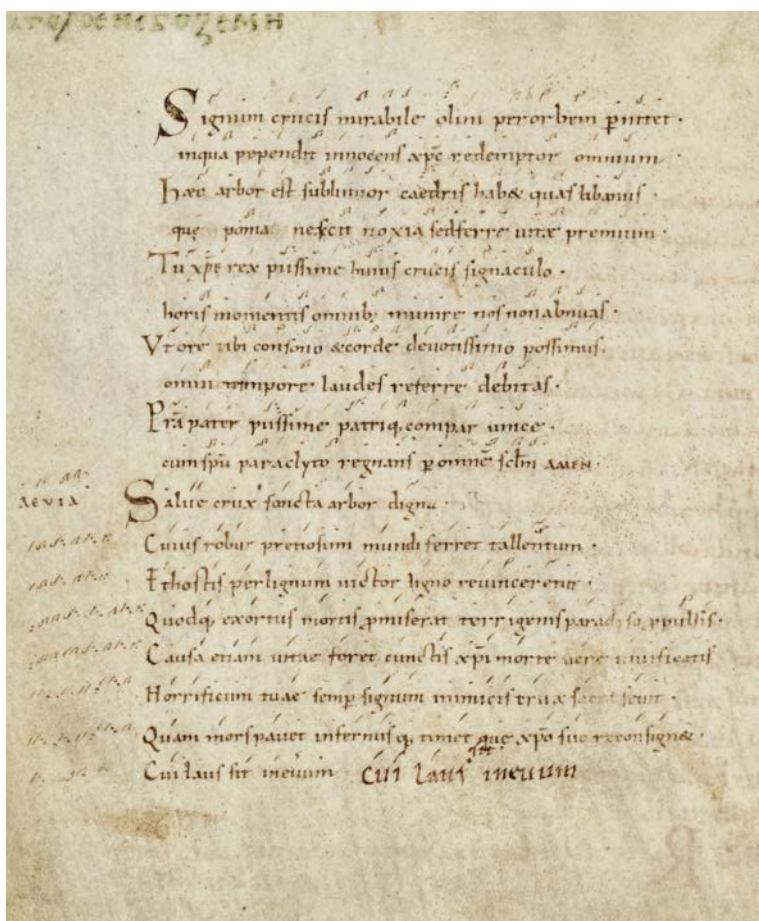 Signum crucis mirabile olim per orbem p̄nitet·
inqua pependit innocens xp̄c redemptor omnium
Haec arbor est sublimior caedris hab& quas libanus·
quę poma nescit noxia sedferre uitae premium·
Tu xp̄e rex piissime huius crucis signaculo·
horis momentis omnib; munire nos nonabnuas·
Vt ore tibi consono &corde deuotissimo possimus·
omni tempore laudes referre debitas·
Prā pater piissime patriq; compar unice·
cum sp̄u paraclyto regnans p̄ omnē sclm AMEN·
AEVIA Salue crux sancta arbor digna·
Cuius robur pretiosum mundi ferret tallentum·
Ethostis perlignum uictor ligno reuinceretur·
Quodq; exortus mortis p̄miserat terrigenis paradyso
Causa etiam uitae foret cunctis xp̄i morte uiuificatis
Horrificum tuae semp̄ signum inimicis crux
Quam mors pauet infernusq; timet quę xp̄o suo
Cui laus sit ineuum Cui laus sit ineuum